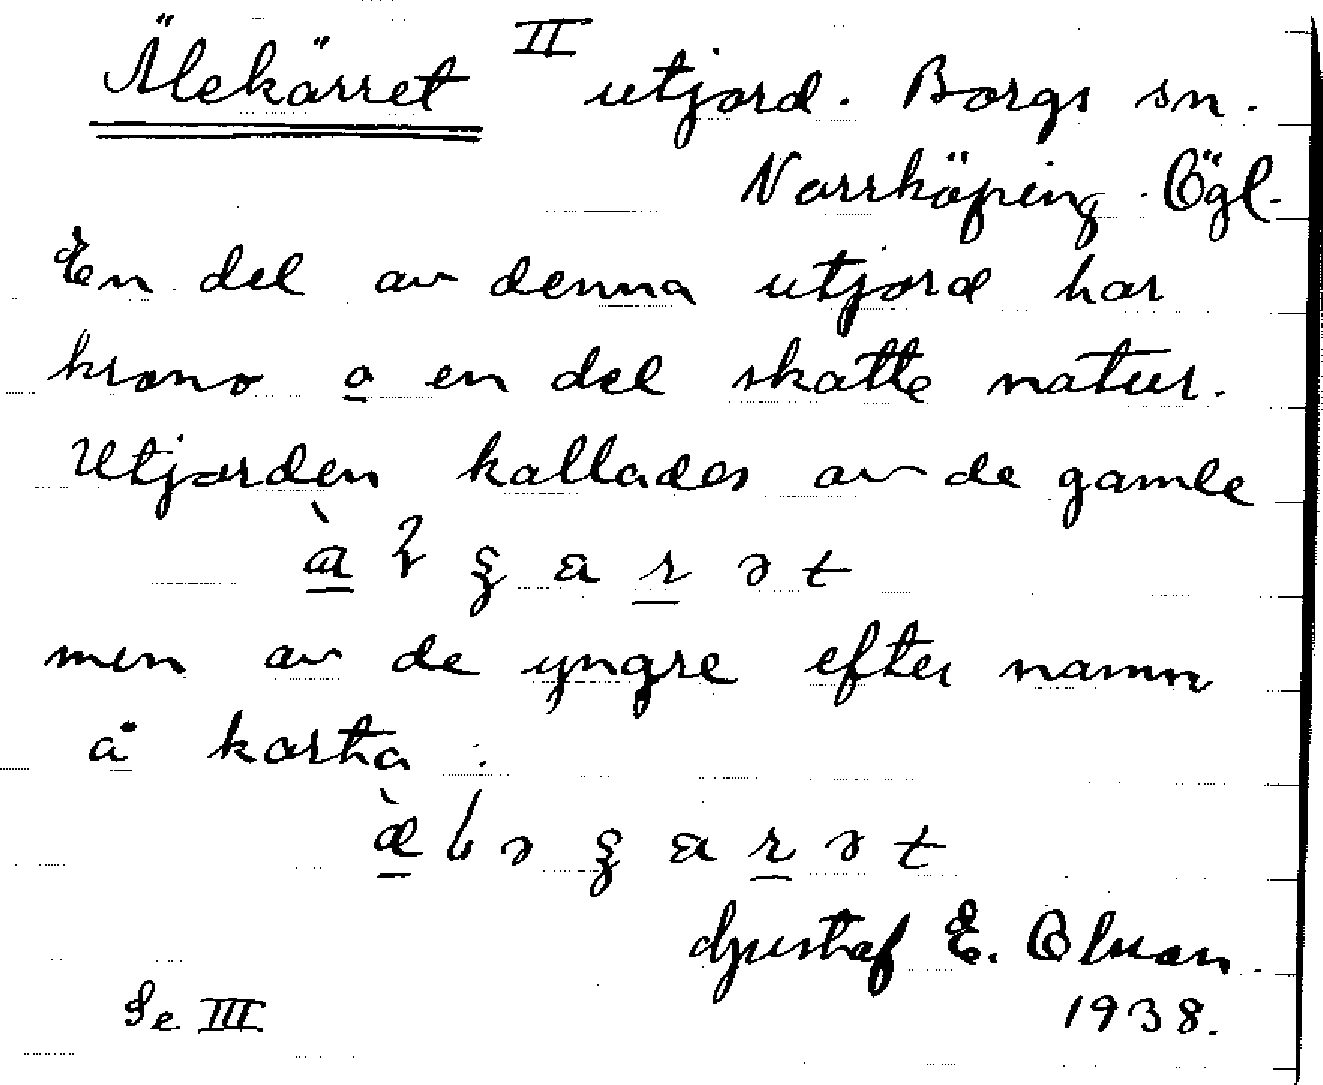 Älekärret II utjord. Borgs sn.
Norrköping. Ögl.
En del av denna utjord har
krono o en del skatte natur.
Utjorden kallades av de gamle
men av de yngre efter namn
å karta:
Gustaf E. Olsson
1938.
Se III